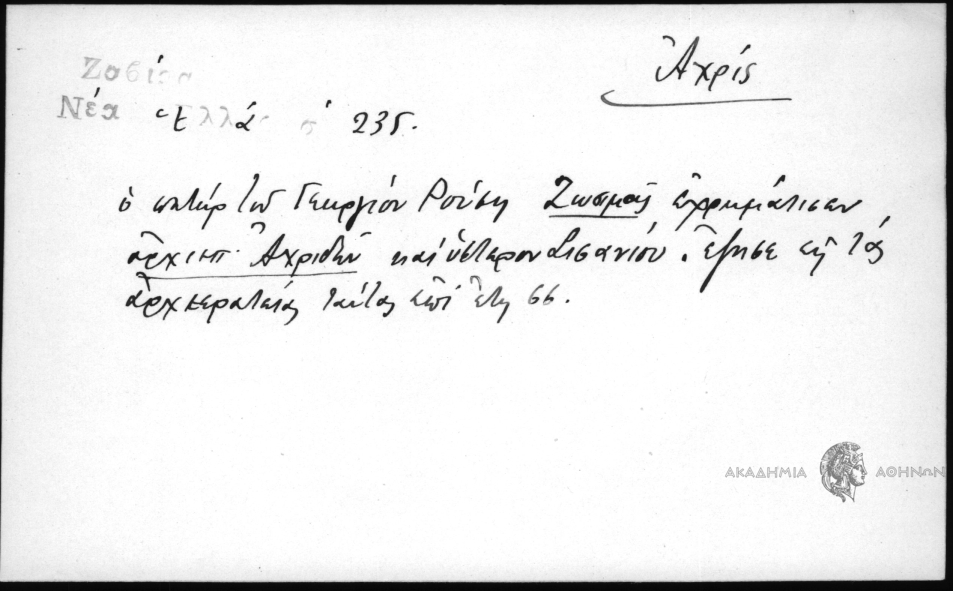 Ἀχρίς
Ζαβίρα
Νέα Ἑλλάς 235.
ὁ πατὴρ τοῦ Γεωργίου Ρούση Ζωσιμᾶς ἐχρημάτισεν
ἀρχιεπ. Ἀχριδῶν καὶ ὕστερον Σισανίου. ἔζησε εἰς τὰς
ἀρχιερατείας ταύτας ἐπὶ ἔτη 66.
ΑΚΑΔΗΜΙΑ ΑΘΗΝΩΝ